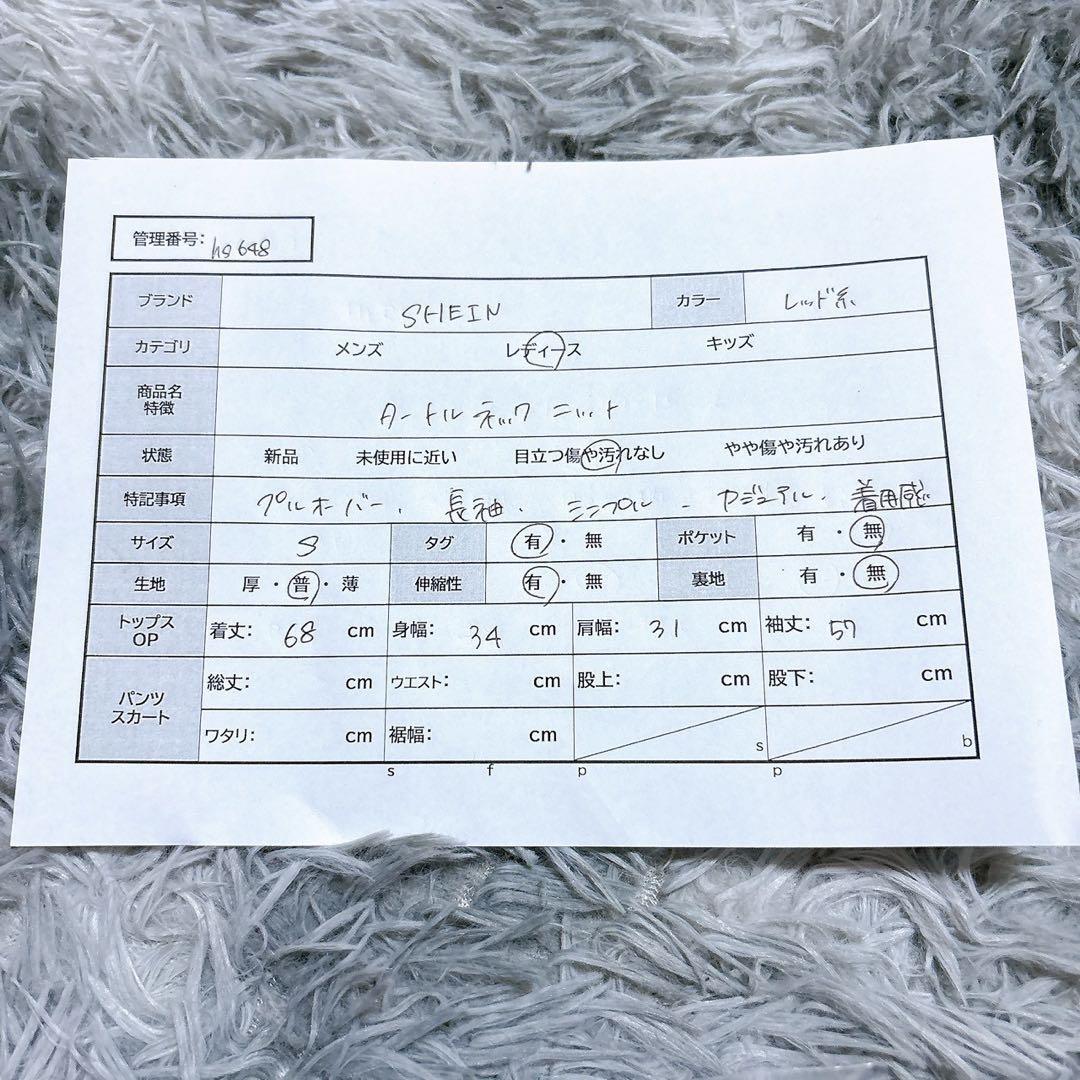 管理番号: hs648
ブランド SHEIN カラー レッド系
カテゴリ メンズ レディース キッズ
商品名 特徴 タートルネックニット
状態 新品 未使用に近い 目立つ傷や汚れなし やや傷や汚れあり
特記事項 プルオーバー、長袖、シンプル、カジュアル、着用感
サイズ S タグ 有・無 ポケット 有・無
生地 厚・普・薄 伸縮性 有・無 裏地 有・無
トップス OP 着丈: 68 cm 身幅: 34 cm 肩幅: 31 cm 袖丈: 57 cm
パンツ スカート 総丈: cm ウエスト: cm 股上: cm 股下: cm
ワタリ: cm 裾幅: cm s b
s f p p